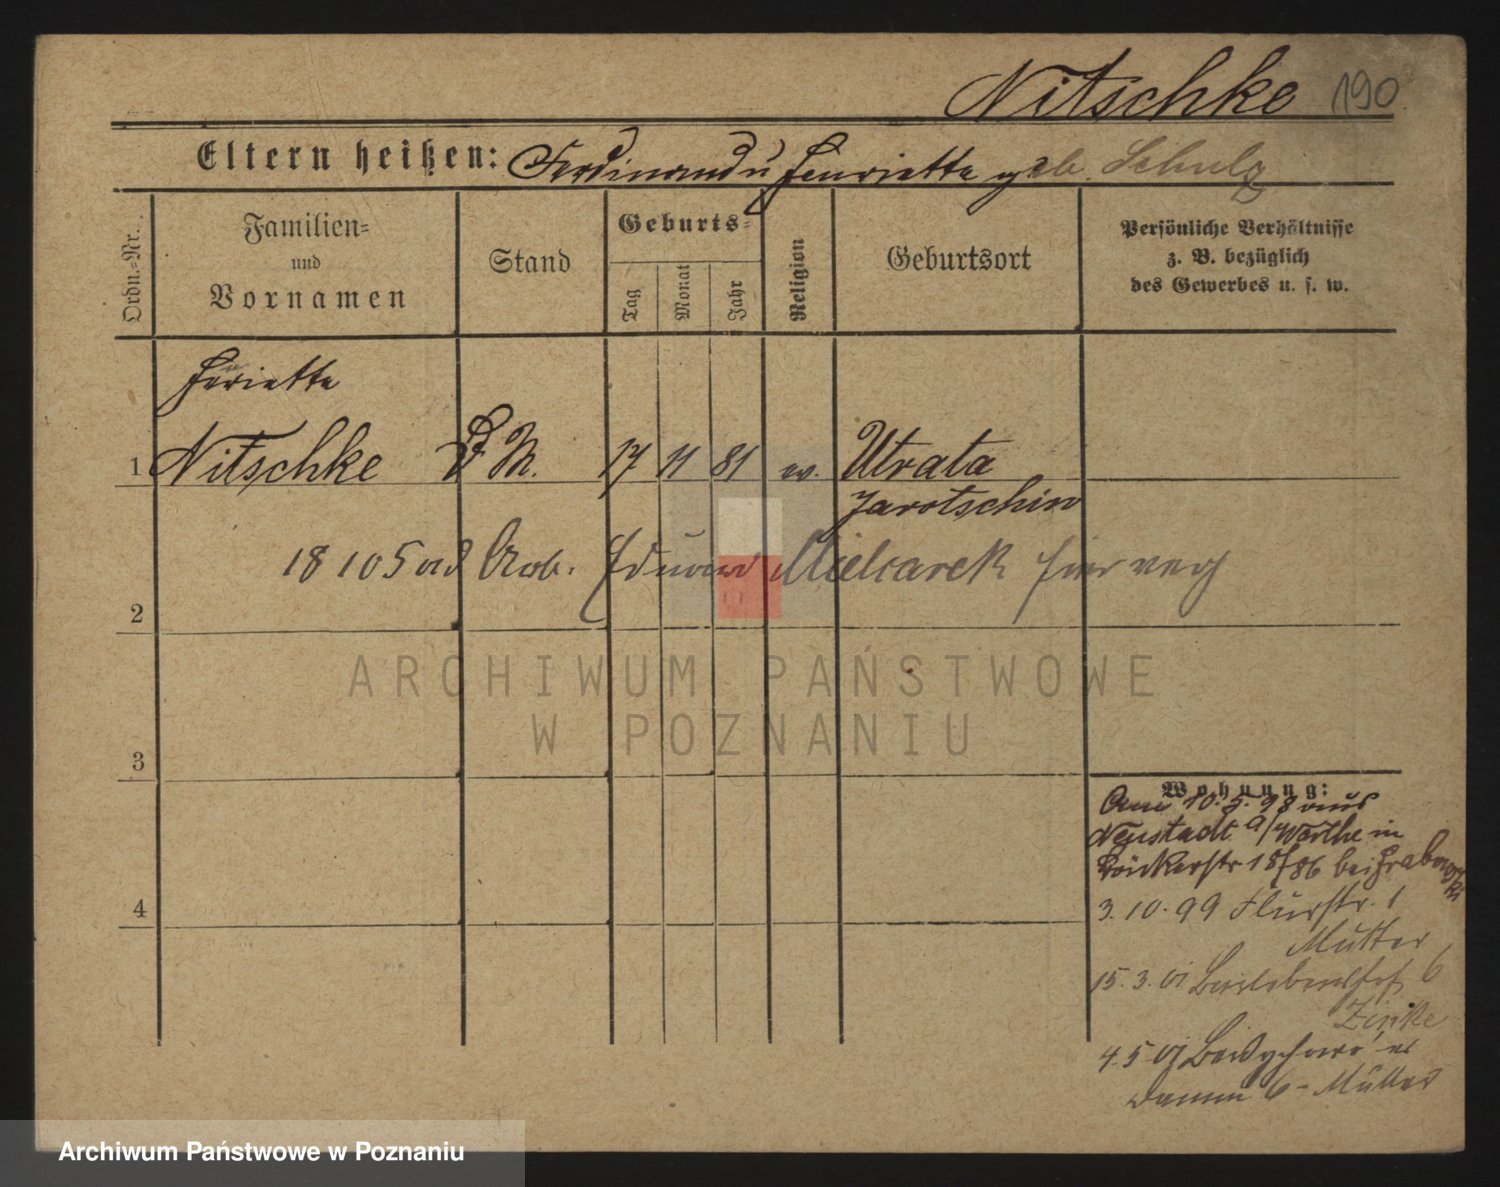 Nitschke 190
Eltern heißen: Ferdinand u Henriette geb. Schulz
Ordn.-Nr.
Familien-
und
Vornamen
Stand
Geburts-
Tag
Monat
Jahr
Religion
Geburtsort
Persönliche Verhältnisse
z. B. bezüglich
des Gewerbes u. s. w.
Henriette
1 Nitschke D M. 17 11 81 ev. Utrata
Jarotschin
18 105 Arb. Eduard Mielcarek
2
3
4
Wohnung:
Am 10. 5. 98 aus
Neustadt a/Warthe in
18/86 bei Grabowski
3. 10. 99 Flurstr. 1
Mutter
15. 3. 01 6
Zinke
4. 5. 01
Damm 6 - Müller
ARCHIWUM PAŃSTWOWE
W POZNANIU
Archiwum Państwowe w Poznaniu